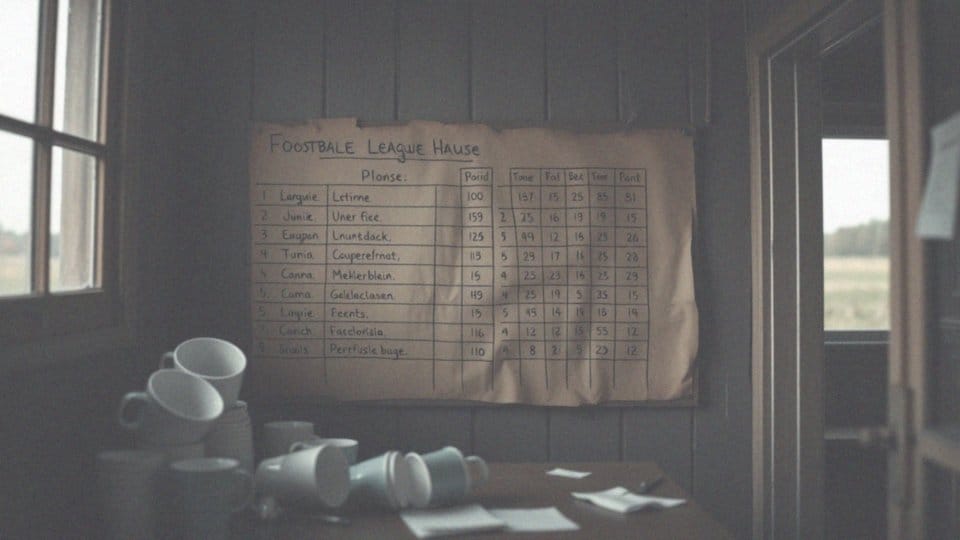 FOOSTBALE LEAGUE HAUSE
Plonse: Porrd Tone Fat Sex Toe Pont
1 Languie Letinne 100 137 15 25 85 51
2 Junie. Uner fice. 159 2 25 16 19 19 15
3 Enupon Lnuntdack. 125 5 49 12 16 25 26
4 Tunia Couperefrnot, 115 5 29 17 16 25 28
4 Canna. Meklerblein. 15 4 23 23 16 25 29
5. Cama Gelelaclasen. 149 4 25 19 5 35 15
5 Loquie Feents. 15 5 49 14 19 16 19
Conch. Facclorisia. 116 4 12 12 15 55 12
Perrfusle buge. 110 8 21 5 23 12